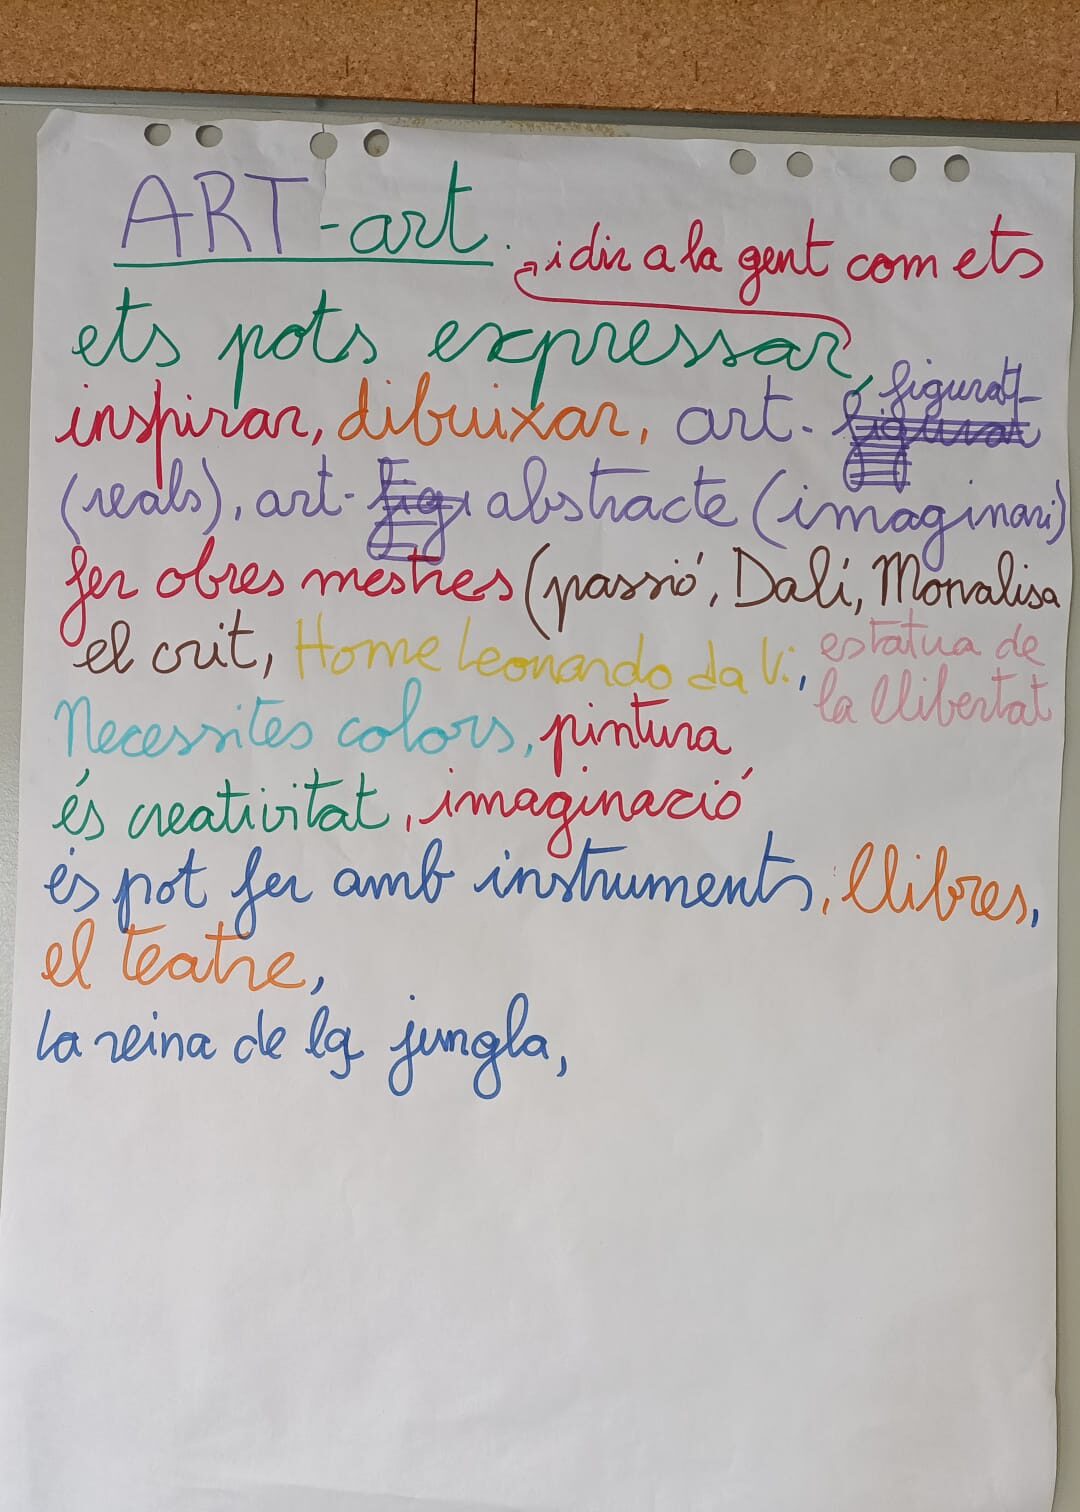 ART - art
i dir a la gent com ets
ets pots expressar,
inspirar, dibuixar, art - figuratiu
(reals), art - abstracte (imaginari)
fer obres mestres (passió, Dalí, Monalisa
el crit, Home Leonardo da Vi, estatua de
la llibertat
Necessites colors, pintura
és creativitat, imaginació
és pot fer amb instruments, llibres,
el teatre,
la reina de la jungla,